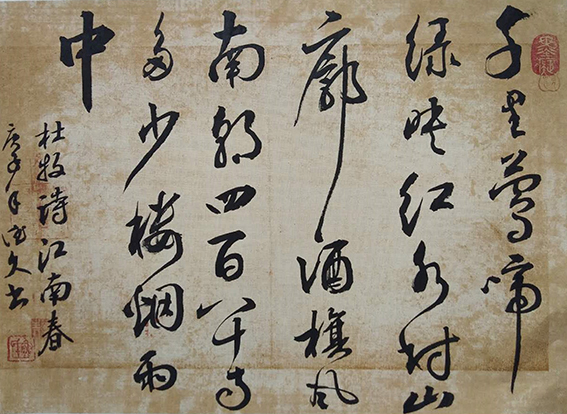 千里莺啼
绿映红水村山
廓酒旗风
南朝四百八十寺
多少楼烟雨
中
杜牧诗江南春
庚子年久书